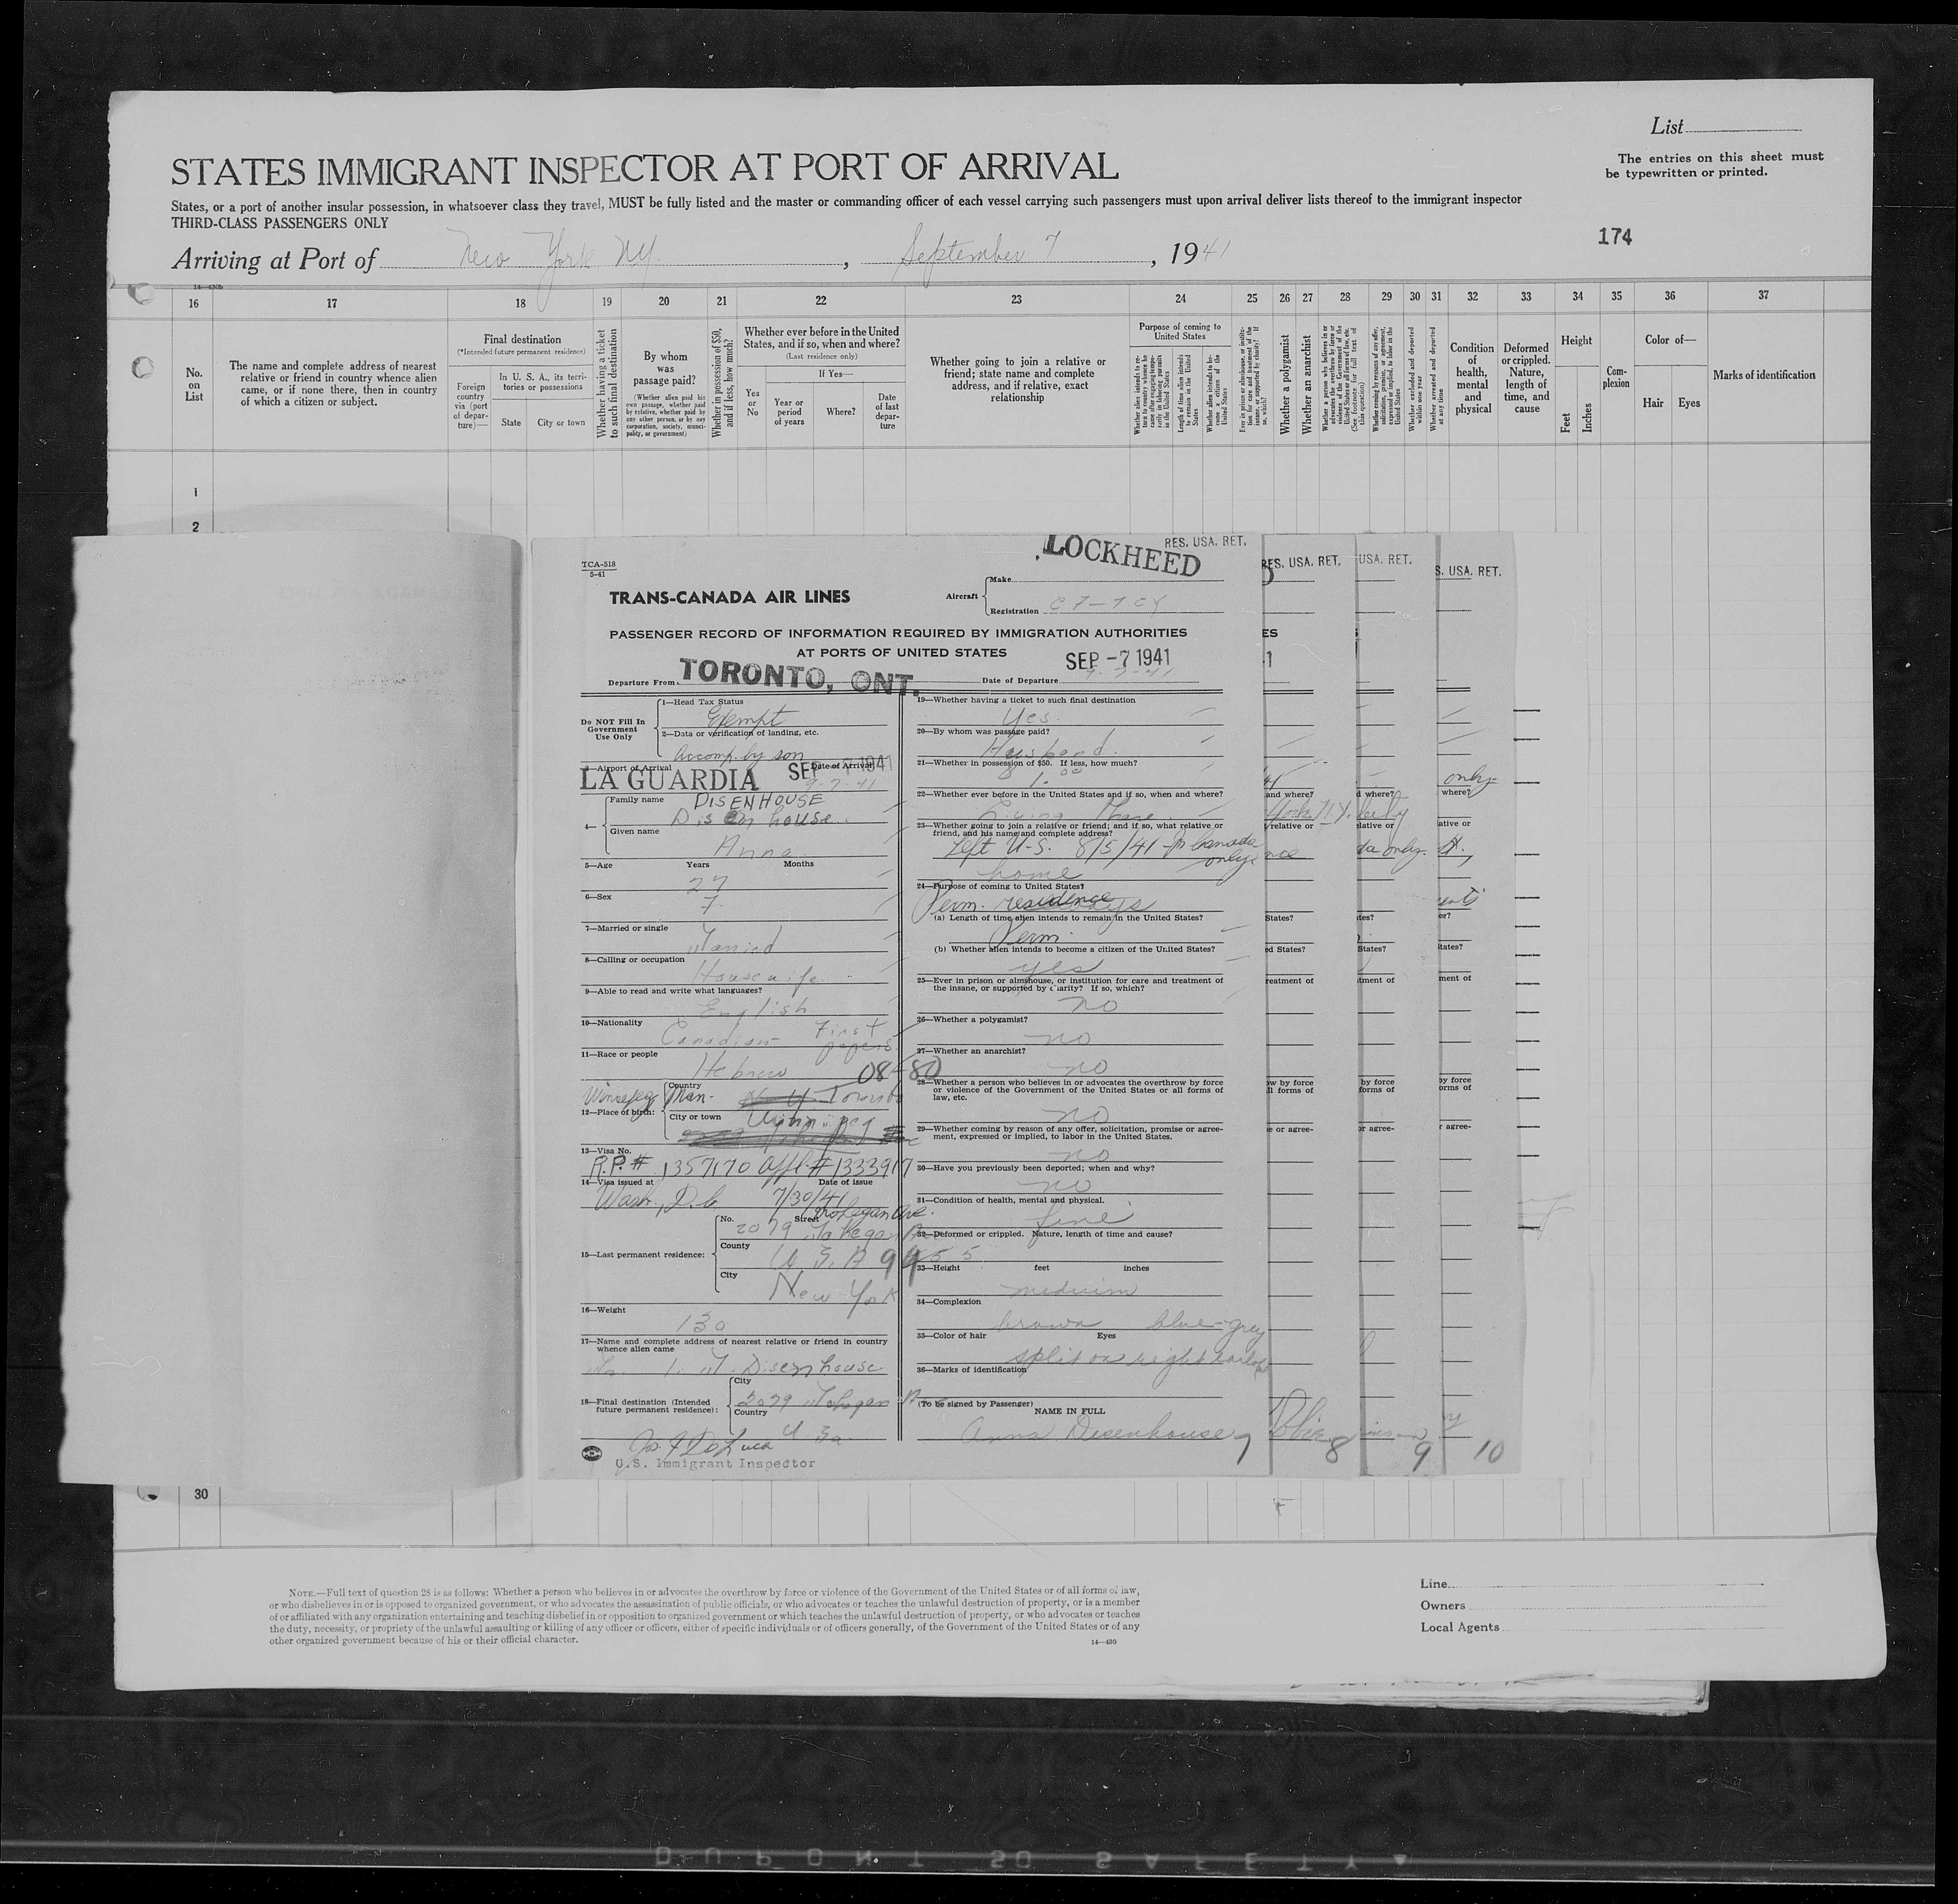 List
The entries on this sheet must
be typewritten or printed.
STATES IMMIGRANT INSPECTOR AT PORT OF ARRIVAL
States, or a port of another insular possession, in whatsoever class they travel, MUST be fully listed and the master or commanding officer of each vessel carrying such passengers must upon arrival deliver lists thereof to the immigrant inspector
THIRD-CLASS PASSENGERS ONLY
174
Arriving at Port of New York NY. , September 7 , 1941
16 17 18 19 20 21 22 23 24 25 26 27 28 29 30 31 32 33 34 35 36 37
No.
on
List
The name and complete address of nearest
relative or friend in country whence alien
came, or if none there, then in country
of which a citizen or subject.
Final destination
(*Intended future permanent residence)
Foreign
country
via (port
of depar-
ture)—
In U. S. A., its terri-
tories or possessions
State
City or town
Whether having a ticket
to such final destination
By whom
was
passage paid?
(Whether alien paid his
own passage, whether paid
by relative, whether paid by
any other person, or by any
corporation, society, munici-
pality, or government)
Whether in possession of $50,
and if less, how much?
Whether ever before in the United
States, and if so, when and where?
(Last residence only)
Yes
or
No
If Yes—
Year or
period
of years
Where?
Date
of last
depar-
ture
Whether going to join a relative or
friend; state name and complete
address, and if relative, exact
relationship
Purpose of coming to
United States
Whether a polygamist
Whether an anarchist
Whether excluded and deported
within one year
Whether arrested and deported
at any time
Condition
of
health,
mental
and
physical
Deformed
or crippled.
Nature,
length of
time, and
cause
Height
Feet
Inches
Com-
plexion
Color of—
Hair
Eyes
Marks of identification
1
2
30
TCA-518
5-41
LOCKHEED
RES. USA. RET.
TRANS-CANADA AIR LINES
Aircraft
Make
Registration CF-TCY
PASSENGER RECORD OF INFORMATION REQUIRED BY IMMIGRATION AUTHORITIES
AT PORTS OF UNITED STATES
Departure From TORONTO, ONT.
SEP -7 1941
Date of Departure
Do NOT Fill In
Government
Use Only
1—Head Tax Status
Exempt
2—Data or verification of landing, etc.
Accomp. by son
3—Airport of Arrival
Date of Arrival
LA GUARDIA SEP -7 1941
9-7-41
4—
Family name DISENHOUSE
Disenhouse
Given name
Anna
5—Age Years Months
27
6—Sex
F
7—Married or single
Married
8—Calling or occupation
Housewife
9—Able to read and write what languages?
English
10—Nationality
Canadian First papers
11—Race or people
Hebrew 08-80
12—Place of birth:
Winnipeg Man.
Country
Toronto
City or town
Winnipeg
13—Visa No.
R.P.# 1357170 Appl.# 1333917
14—Visa issued at Date of issue
Wash., D.C. 7/30/41
15—Last permanent residence:
No. Street
2079
County
U S A 99
City
New York
16—Weight
130
17—Name and complete address of nearest relative or friend in country
whence alien came
Disenhouse
18—Final destination (Intended
future permanent residence):
City
2079
Country
U.S.a.
U.S. Immigrant Inspector
19—Whether having a ticket to such final destination
Yes
20—By whom was passage paid?
Husband
21—Whether in possession of $50. If less, how much?
22—Whether ever before in the United States and if so, when and where?
Living there
23—Whether going to join a relative or friend; and if so, what relative or
friend, and his name and complete address?
Left U.S. 8/5/41 - to Canada
only
home
24—Purpose of coming to United States?
Perm. residence
(a) Length of time alien intends to remain in the United States?
Perm.
(b) Whether alien intends to become a citizen of the United States?
yes
25—Ever in prison or almshouse, or institution for care and treatment of
the insane, or supported by charity? If so, which?
no
26—Whether a polygamist?
no
27—Whether an anarchist?
no
28—Whether a person who believes in or advocates the overthrow by force
or violence of the Government of the United States or all forms of
law, etc.
no
29—Whether coming by reason of any offer, solicitation, promise or agree-
ment, expressed or implied, to labor in the United States.
no
30—Have you previously been deported; when and why?
no
31—Condition of health, mental and physical.
fine
32—Deformed or crippled. Nature, length of time and cause?
5 5
33—Height feet inches
medium
34—Complexion
brown blue-grey
35—Color of hair Eyes
split on right earlobe
36—Marks of identification
(To be signed by Passenger)
NAME IN FULL
Anna Disenhouse
7 8 9 10
NOTE.—Full text of question 28 is as follows: Whether a person who believes in or advocates the overthrow by force or violence of the Government of the United States or of all forms of law,
or who disbelieves in or is opposed to organized government, or who advocates the assassination of public officials, or who advocates or teaches the unlawful destruction of property, or is a member
of or affiliated with any organization entertaining and teaching disbelief in or opposition to organized government or which teaches the unlawful destruction of property, or who advocates or teaches
the duty, necessity, or propriety of the unlawful assaulting or killing of any officer or officers, either of specific individuals or of officers generally, of the Government of the United States or of any
other organized government because of his or their official character.
14—430
Line
Owners
Local Agents
DUPONT SO SAFETY